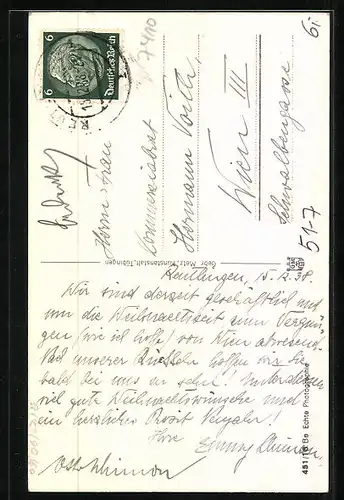 6i
7410
6
Deutsches Reich
Herrn u. Frau
Kommerzialrat
Hermann Voith
Wien III
Schwalbengasse
51-7
Gebr. Metz, Kunstanstalt, Tübingen
Reutlingen, 15.12.38.
Wir sind derzeit geschäftlich und
um die Weihnachtszeit zum Vergnü-
gen (wie ich hoffe) von Wien abwesend.
Bei unserer Rückkehr hoffen wir Sie
bald bei uns zu sehn! Unterdessen
viel gute Weihnachtswünsche und
ein herzliches Prosit Neujahr!
Ihre
451/18 Bo Echte Photographie